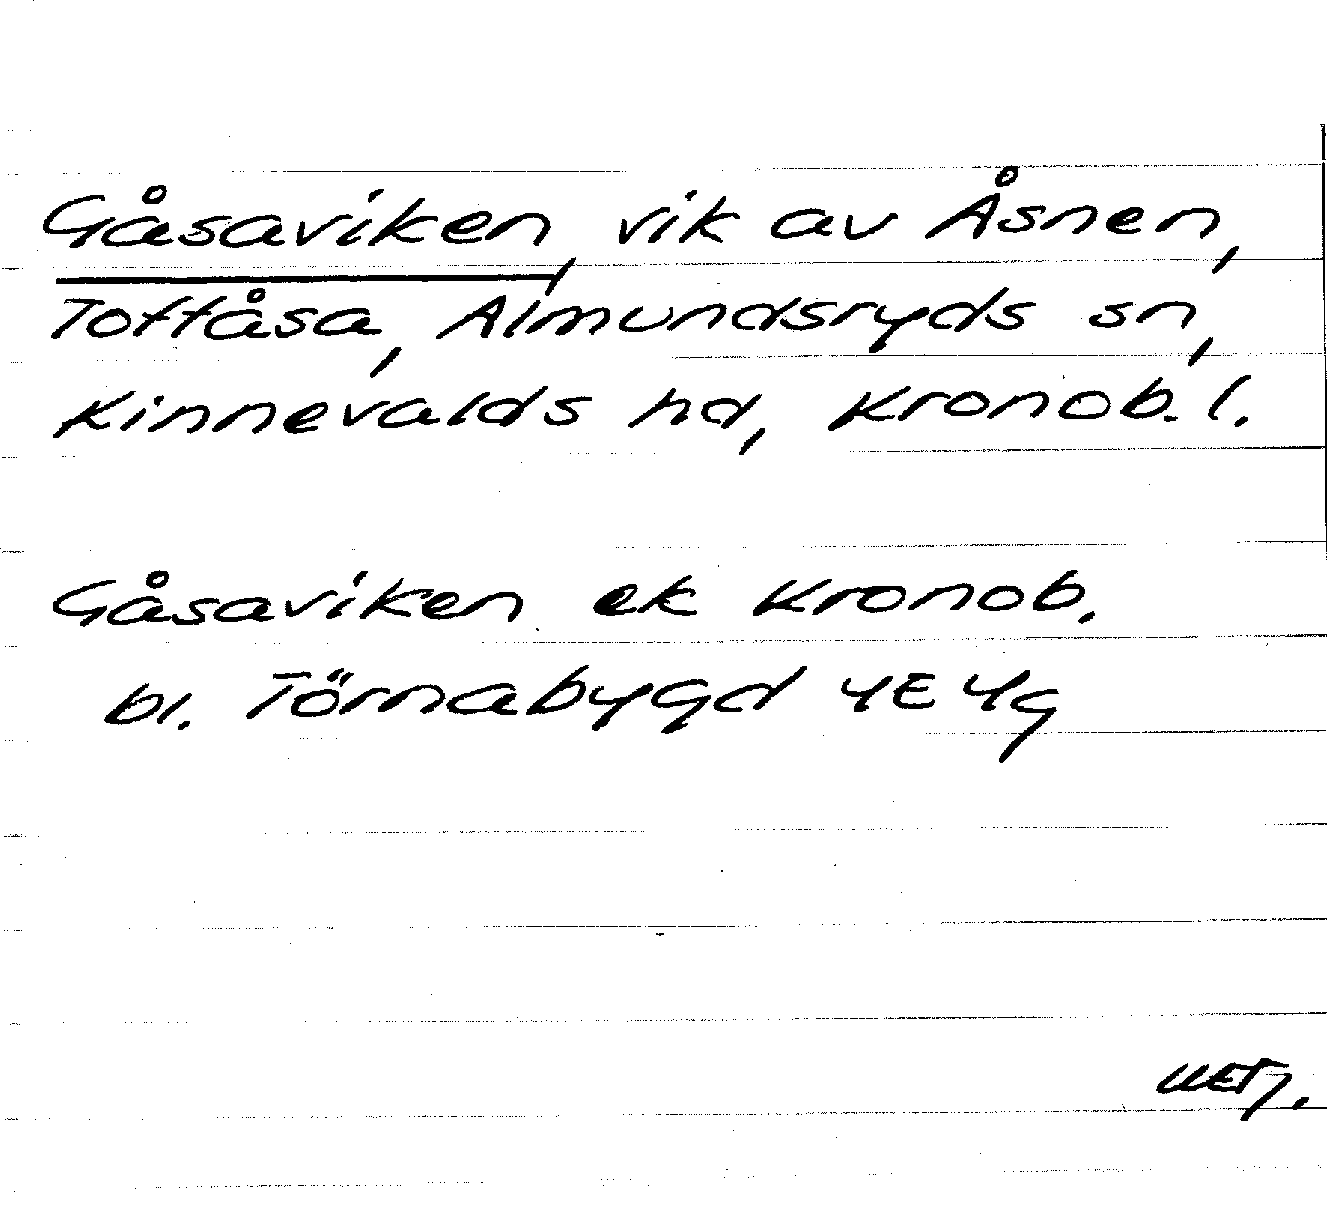 Gåsaviken, vik av Åsnen,
Toftåsa, Almundsryds sn,
Kinnevalds hd, Kronob. l.
Gåsaviken ek Kronob.
bl. Törnabygd 4E4g